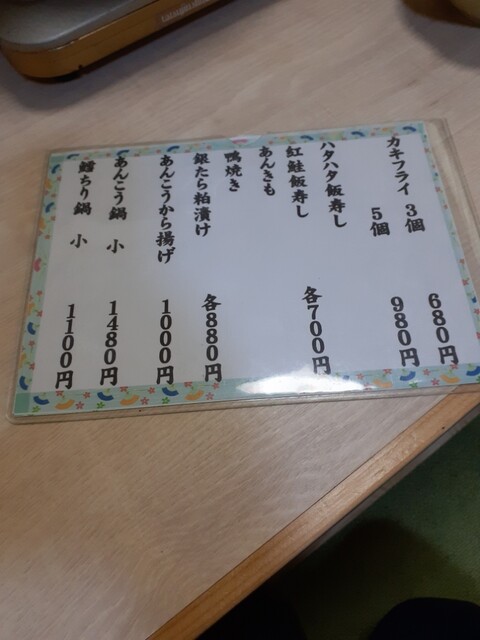 カキフライ 3個 680円
5個 980円
ハタハタ飯寿し
紅鮭飯寿し 各700円
あんきも
鴨焼き
銀たら粕漬け 各880円
あんこうから揚げ 1000円
あんこう鍋 小 1480円
鱈ちり鍋 小 1100円